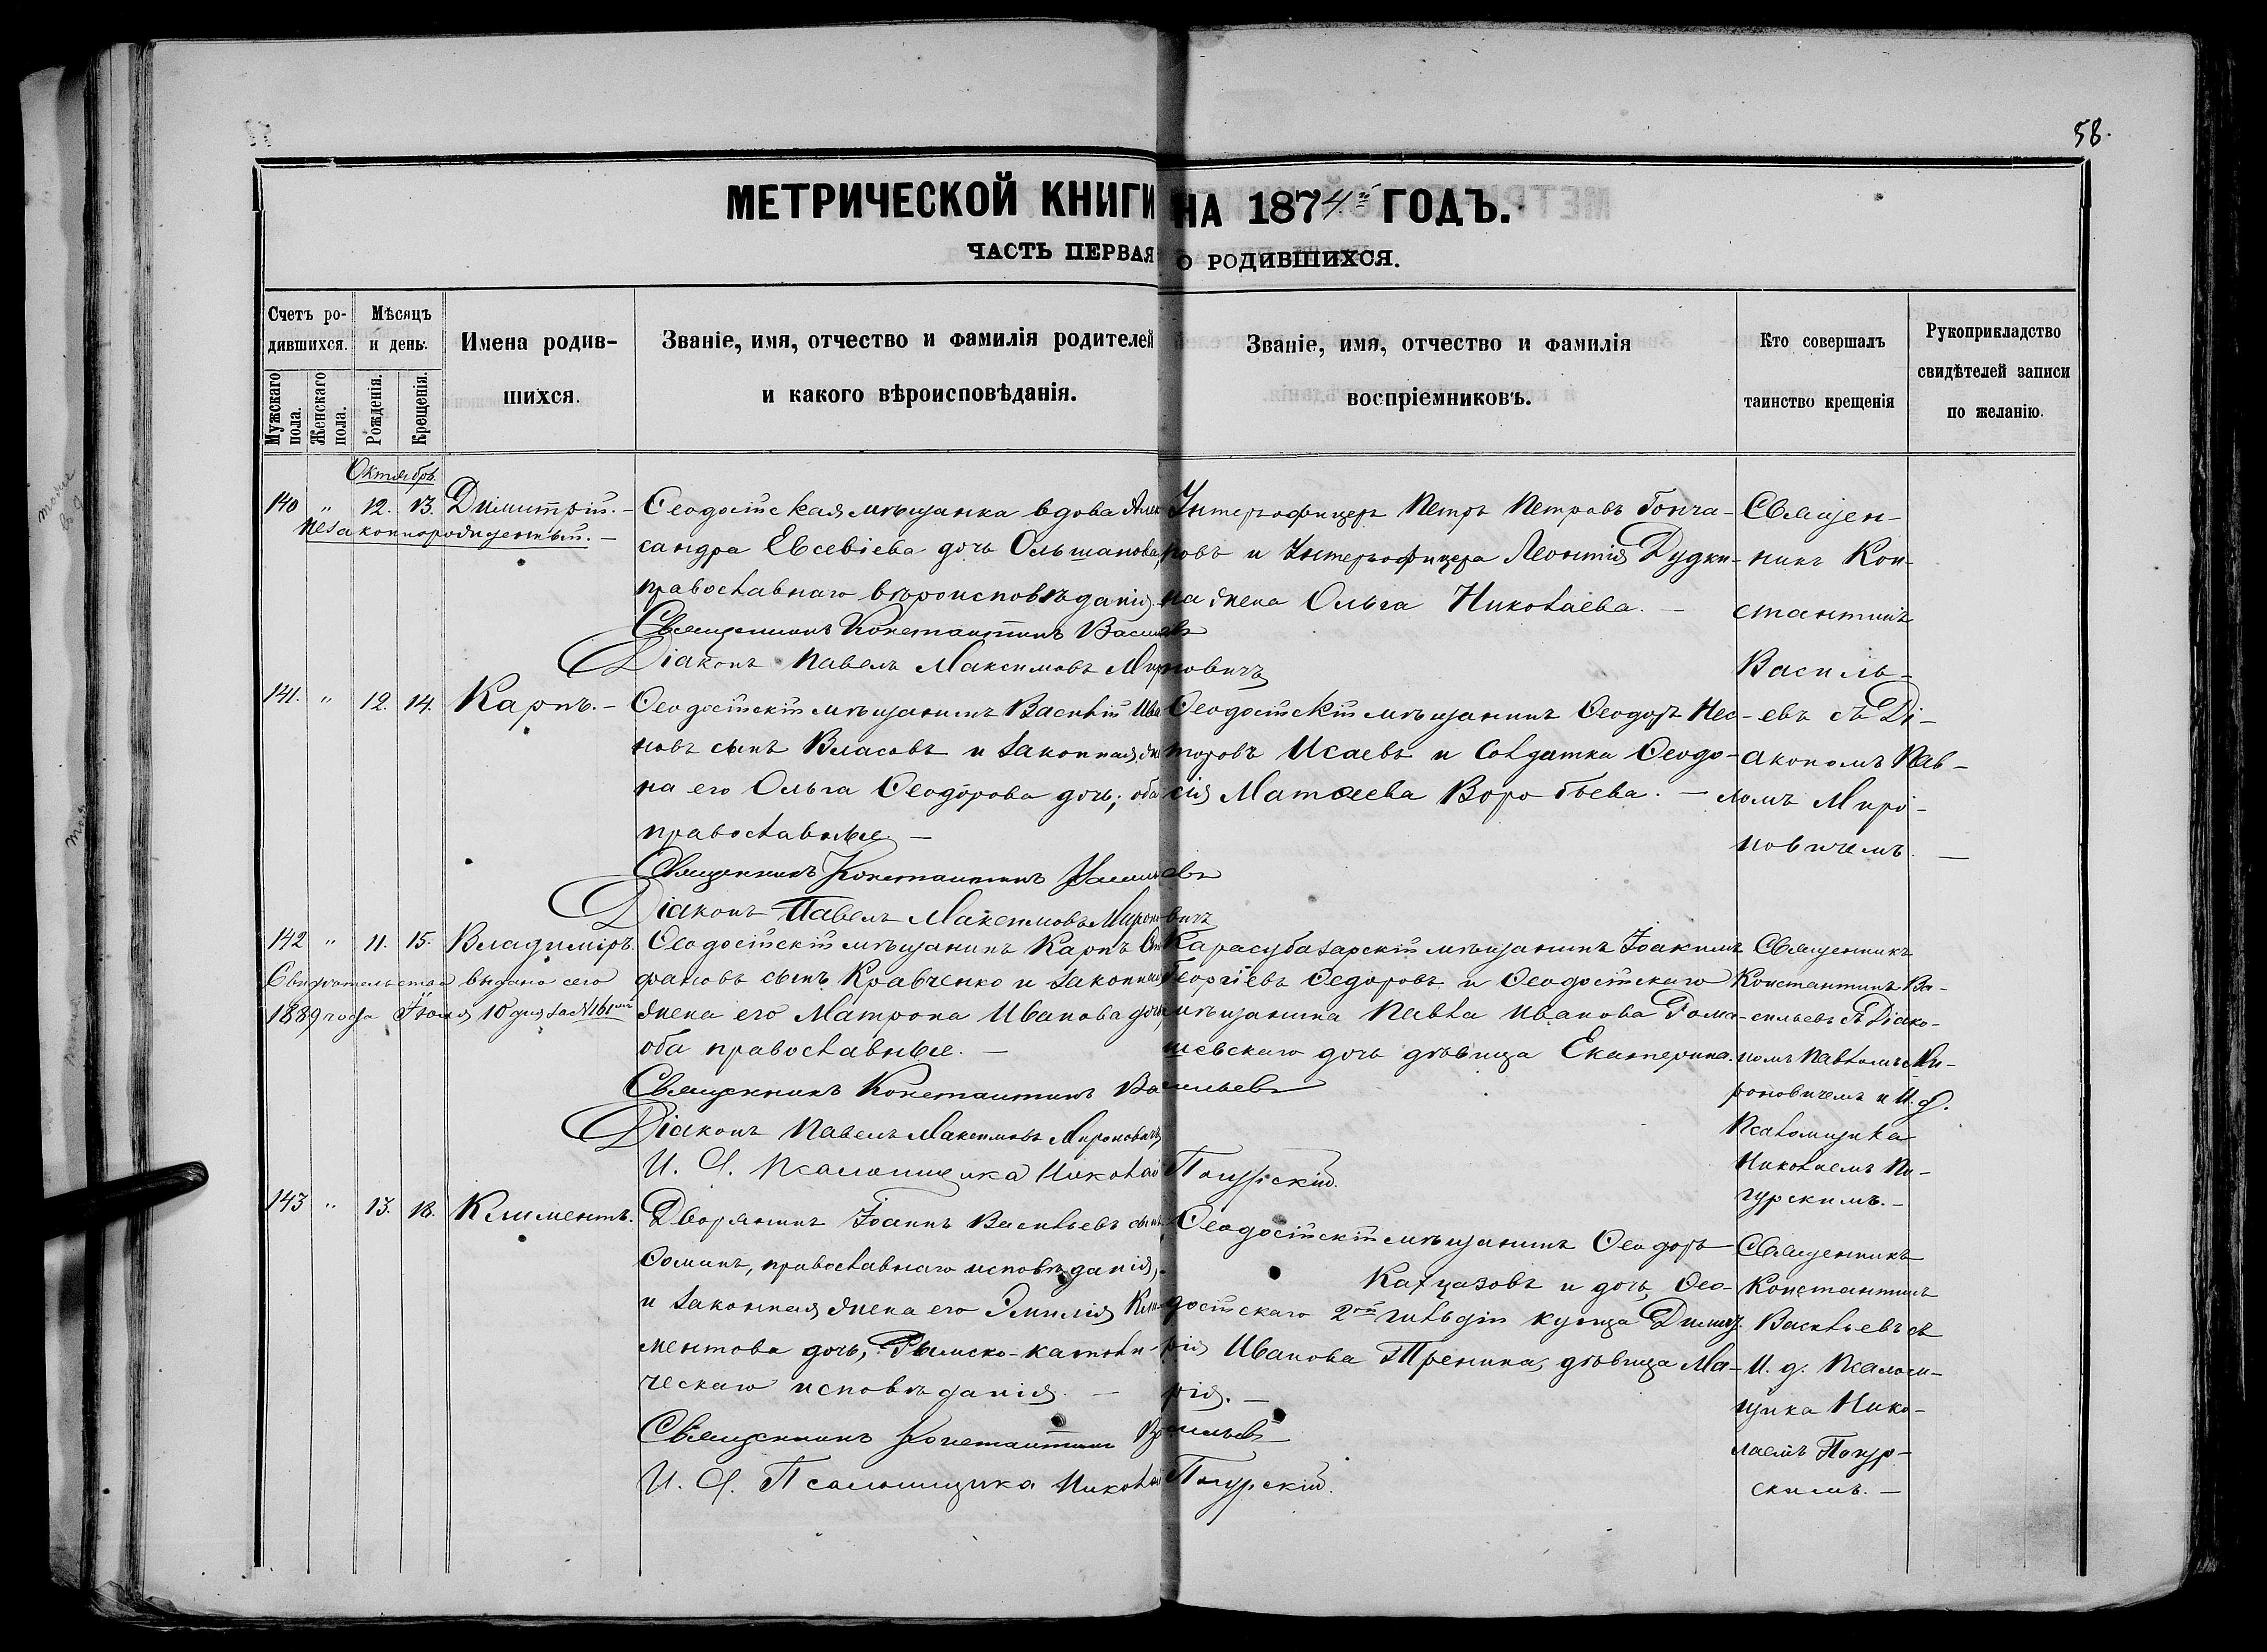 58.
МЕТРИЧЕСКОЙ КНИГИ НА 1874й ГОДЪ.
ЧАСТЬ ПЕРВАЯ О РОДИВШИХСЯ.
Счетъ ро-
дившихся.
Мужскаго пола.
Женскаго пола.
Мѣсяцъ
и день.
Рожденія.
Крещенія.
Имена родив-
шихся.
Званіе, имя, отчество и фамилія родителей
и какого вѣроисповѣданія.
Званіе, имя, отчество и фамилія
воспріемниковъ.
Кто совершалъ
таинство крещенія
Рукоприкладство
свидѣтелей записи
по желанію.
Октябрь
140 " 12. 13. Димитрій.
незаконнорожденный.
Ѳеодосійская мѣщанка вдова Алек
сандра Евсевіева дочь Ольшанова,
православнаго вѣроисповѣданія.
Священникъ Константинъ Васильевъ
Діаконъ Павелъ Максимовъ Мироновичъ
Унтеръ-офицеръ Петръ Петровъ Гонча-
ровъ и Унтеръ-офицера Леонтія Дудки-
на жена Ольга Николаева.
Священ-
никъ Кон-
стантинъ
Василь-
евъ съ Ді-
акономъ Пав-
ломъ Миро-
новичемъ.
141. " 12. 14. Карпъ.
Ѳеодосійскій мѣщанинъ Василій Ива
новъ сынъ Власовъ и законная же
на его Ольга Ѳеодорова дочь; оба
православные.
Священникъ Константинъ Васильевъ
Діаконъ Павелъ Максимовъ Мироновичъ
Ѳеодосійскій мѣщанинъ Ѳеодоръ Нес-
торовъ Исаевъ и Солдатка Ѳеодо-
сія Матѳеева Воробьева.
142 " 11. 15. Владиміръ.
Свидѣтельство выдано сего
1889 года Іюня 10 дня за № 161
Ѳеодосійскій мѣщанинъ Карпъ Сте
фановъ сынъ Кравченко и законная
жена его Матрона Иванова дочь,
оба православные.
Священникъ Константинъ Васильевъ
Діаконъ Павелъ Максимовъ Мироновичъ
И. д. Псаломщика Николай Пигурскій.
Карасубазарскій мѣщанинъ Іоакимъ
Георгіевъ Ѳедоровъ и Ѳеодосійскаго
мѣщанина Павла Иванова Рома-
шевскаго дочь дѣвица Екатерина.
Священникъ
Константинъ Ва-
сильевъ съ Діако-
номъ Павломъ Ми-
роновичемъ и И. д.
Псаломщика
Николаемъ Пи-
гурскимъ.
143 " 13. 18. Климентъ.
Дворянинъ Іоаннъ Васильевъ сынъ
Ѳоминъ, православнаго исповѣданія,
и законная жена его Эмилія Кли-
ментова дочь, Римско-католи-
ческаго исповѣданія.
Священникъ Константинъ Васильевъ
И. д. Псаломщика Николай Пигурскій.
Ѳеодосійскій мѣщанинъ Ѳеодоръ
и дочь Ѳео-
досійскаго 2ой гильдіи купца Димит-
рія Иванова Тренина, дѣвица Ма-
рія.
Священникъ
Константинъ
Васильевъ съ
И. д. Псалом-
щика Нико-
лаемъ Пигур-
скимъ.